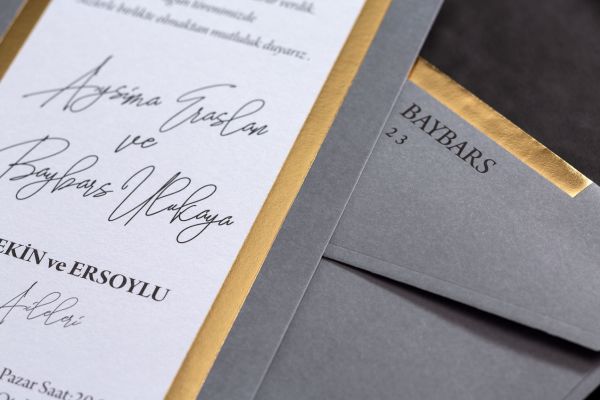 verdik.
törenimizde
Sizlerle birlikte olmaktan mutluluk duyarız.
Aysima Eraslan
ve
Baybars Ulukaya
EKİN ve ERSOYLU
Aileleri
Pazar Saat:20
BAYBARS
23